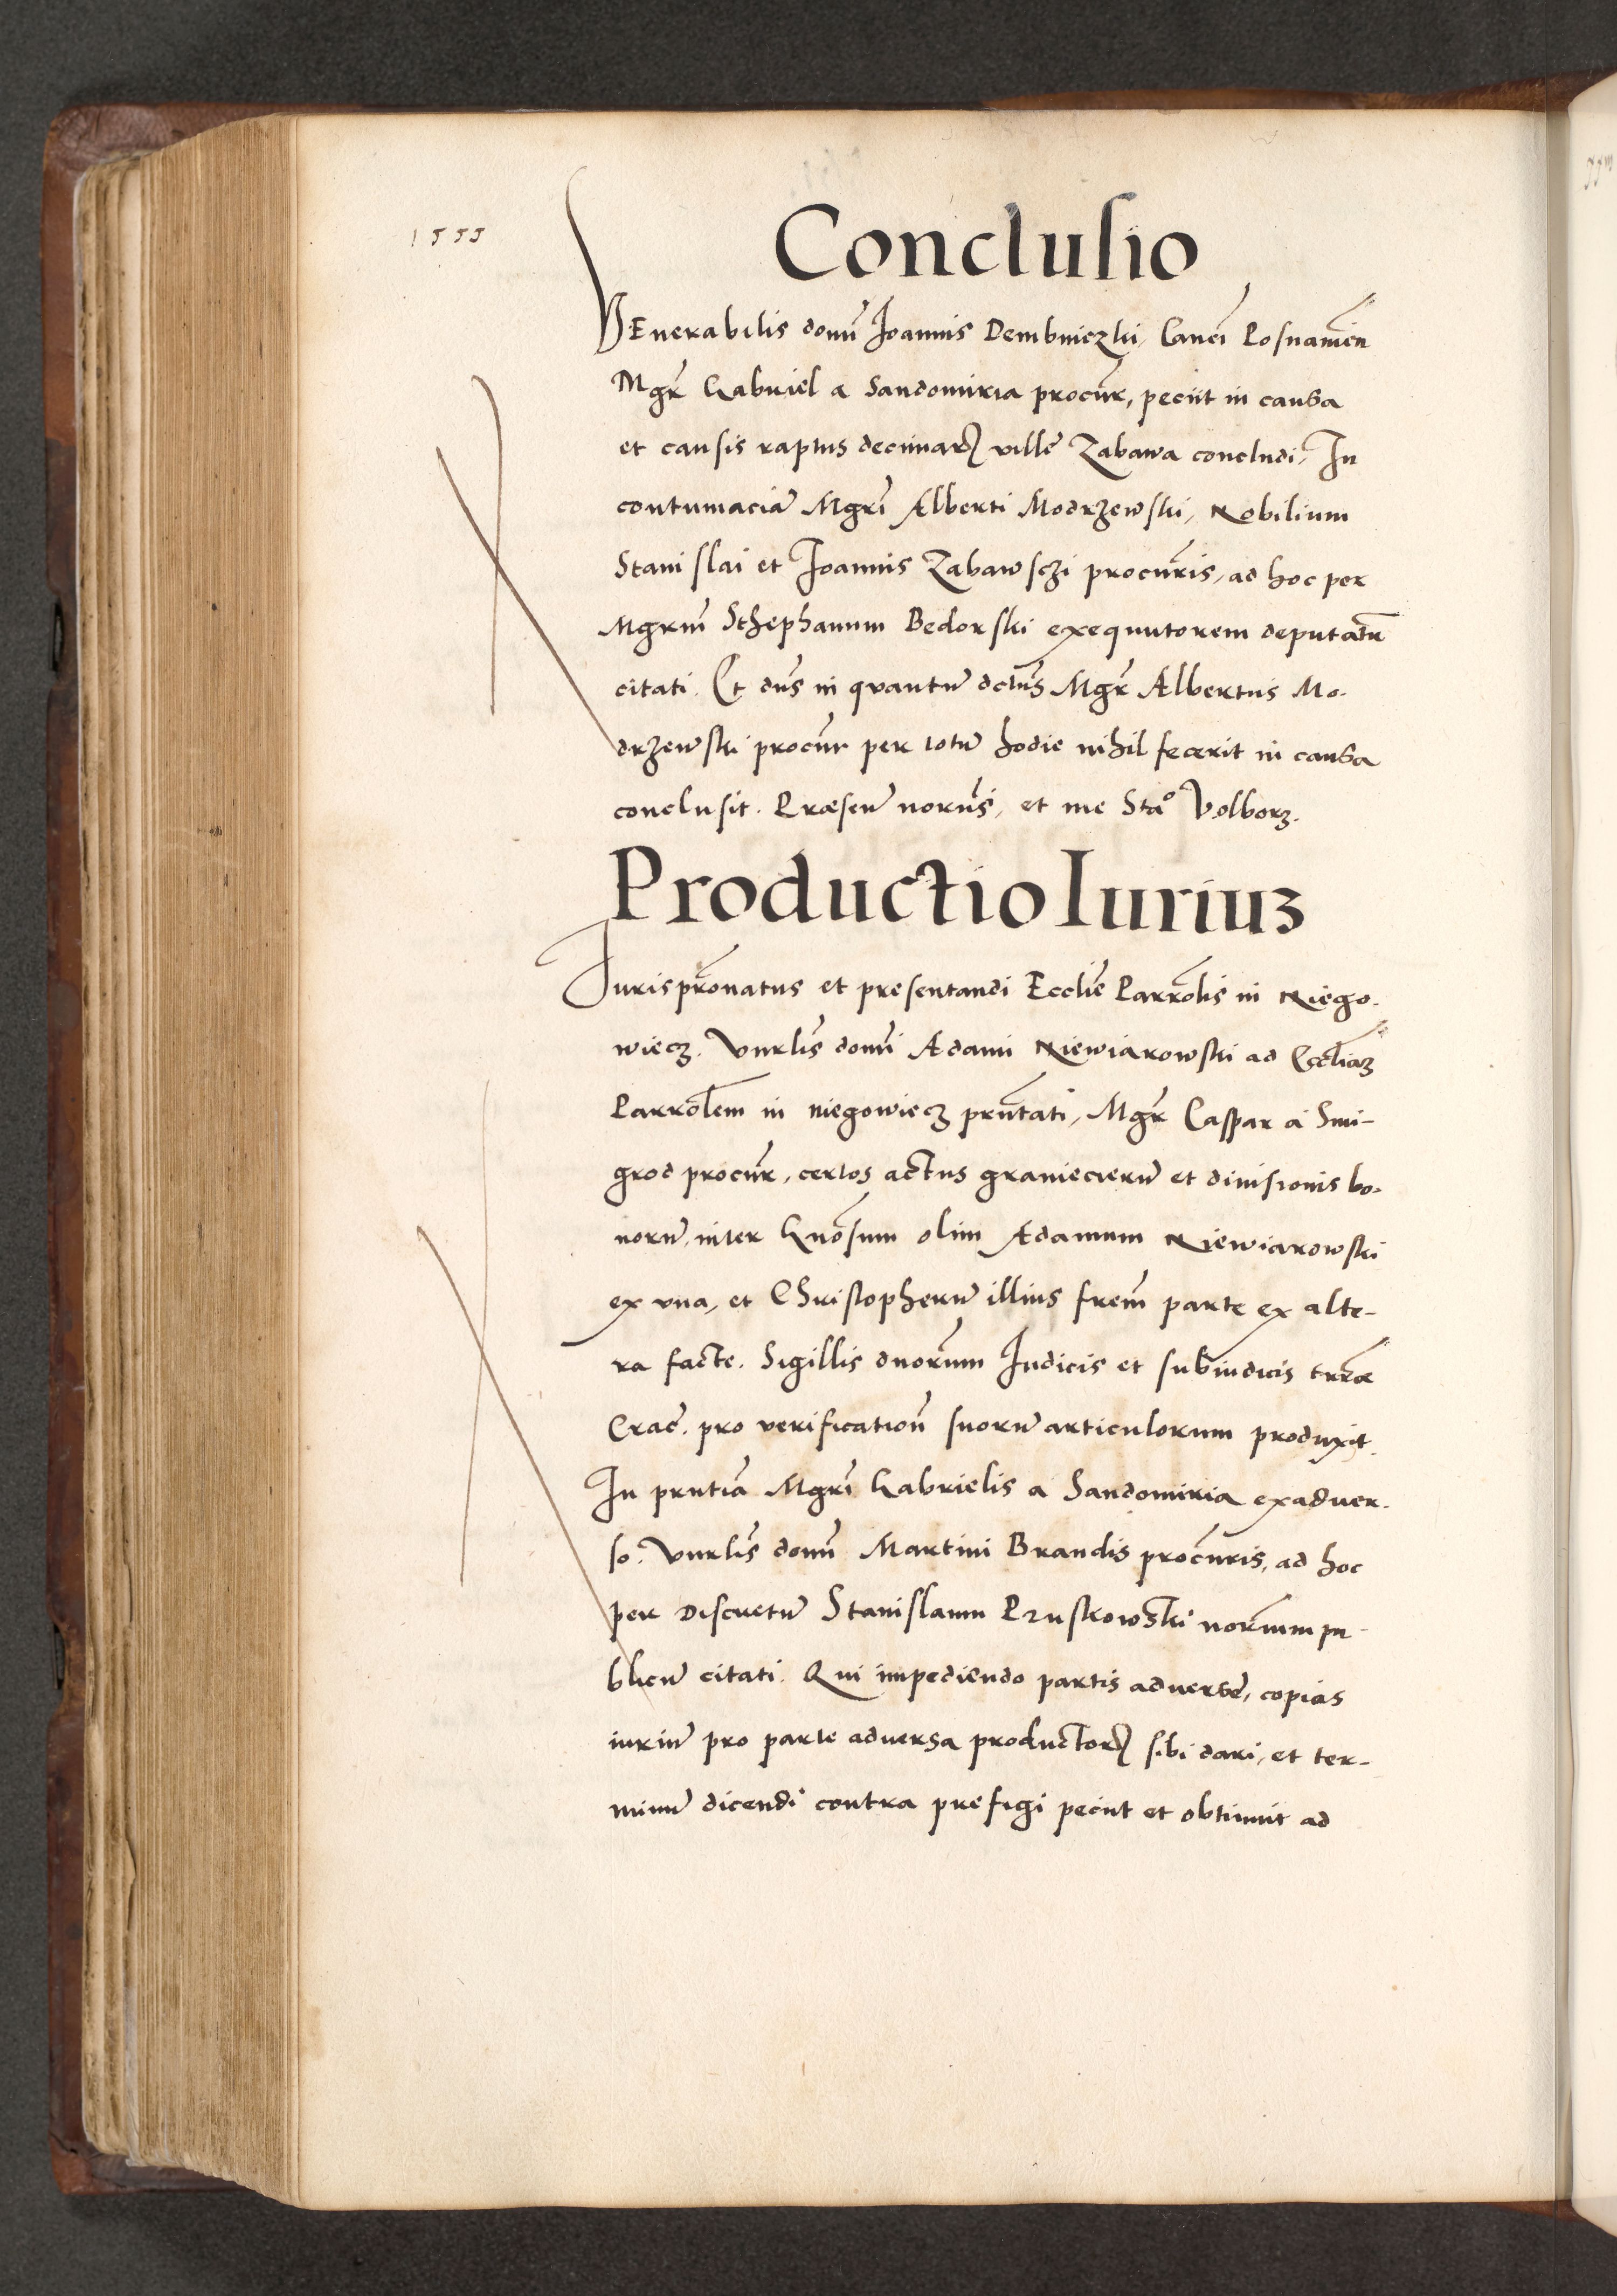 1555
Conclusio
VEnerabilis domī Joannis Dembniczki, Canci Posnanien̄
Mgr̄ Gabriel a Sandomiria procūr, peciit in causa
et causis raptus decimarꝝ villē Zabawa concludi, In
contumaciā Mgrī Alberti Modrzewski, Nobilium
Stanislai et Joannis Zabawsczi procūris, ad hoc per
Mgrum̄ Sthephanum Bedorski exequutorem deputatū
citati. Et dn̄s in quantū dctūs Mgr̄ Albertus Mo-
drzewski procūr per totū hodie nihil fecerit in causa
conclusit. Præsen̄ norijs, et me Sta° Volborz.
Productio Iuriuꝫ
Jurispr̄onatus et presentandi Ecclīe Parrōlis in Niego-
wiecz. Vnrlīs domī Adami Niewiarowski ad Eccliaꝫ
Parrōlem in niegowiecz prn̄tati, Mgr̄ Caspar a Smi-
grod procūr, certos actus granicierū et diuisionis bo-
norū, inter Gnōsum olim Adamum Niewiarowski
ex vna, et Christopherū illius frem̄ parte ex alte-
ra facte. Sigillis duorum Judicis et subiudicis trræ
Crac̄. pro verification̄ suorū articulorum produxit.
In prntiā Mgrī Gabrielis a Sandomiria exaduer-
so. Vnrlīs domī Martini Brandis procūris, ad hoc
per Discretū Stanislaum Pruskowski norium pu-
blicū citati. Qui impediendo partis aduersē, copias
iuriū pro parte aduersa productorꝝ sibi dari, et ter-
minū dicendi contra prefigi peciit et obtinuit ad